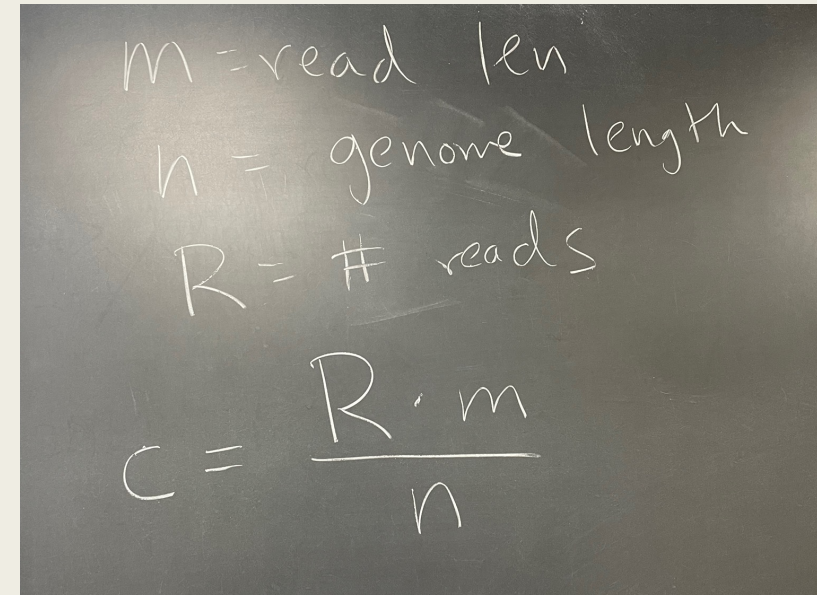 m = read len
n = genome length
R = # reads
c = R · m
n